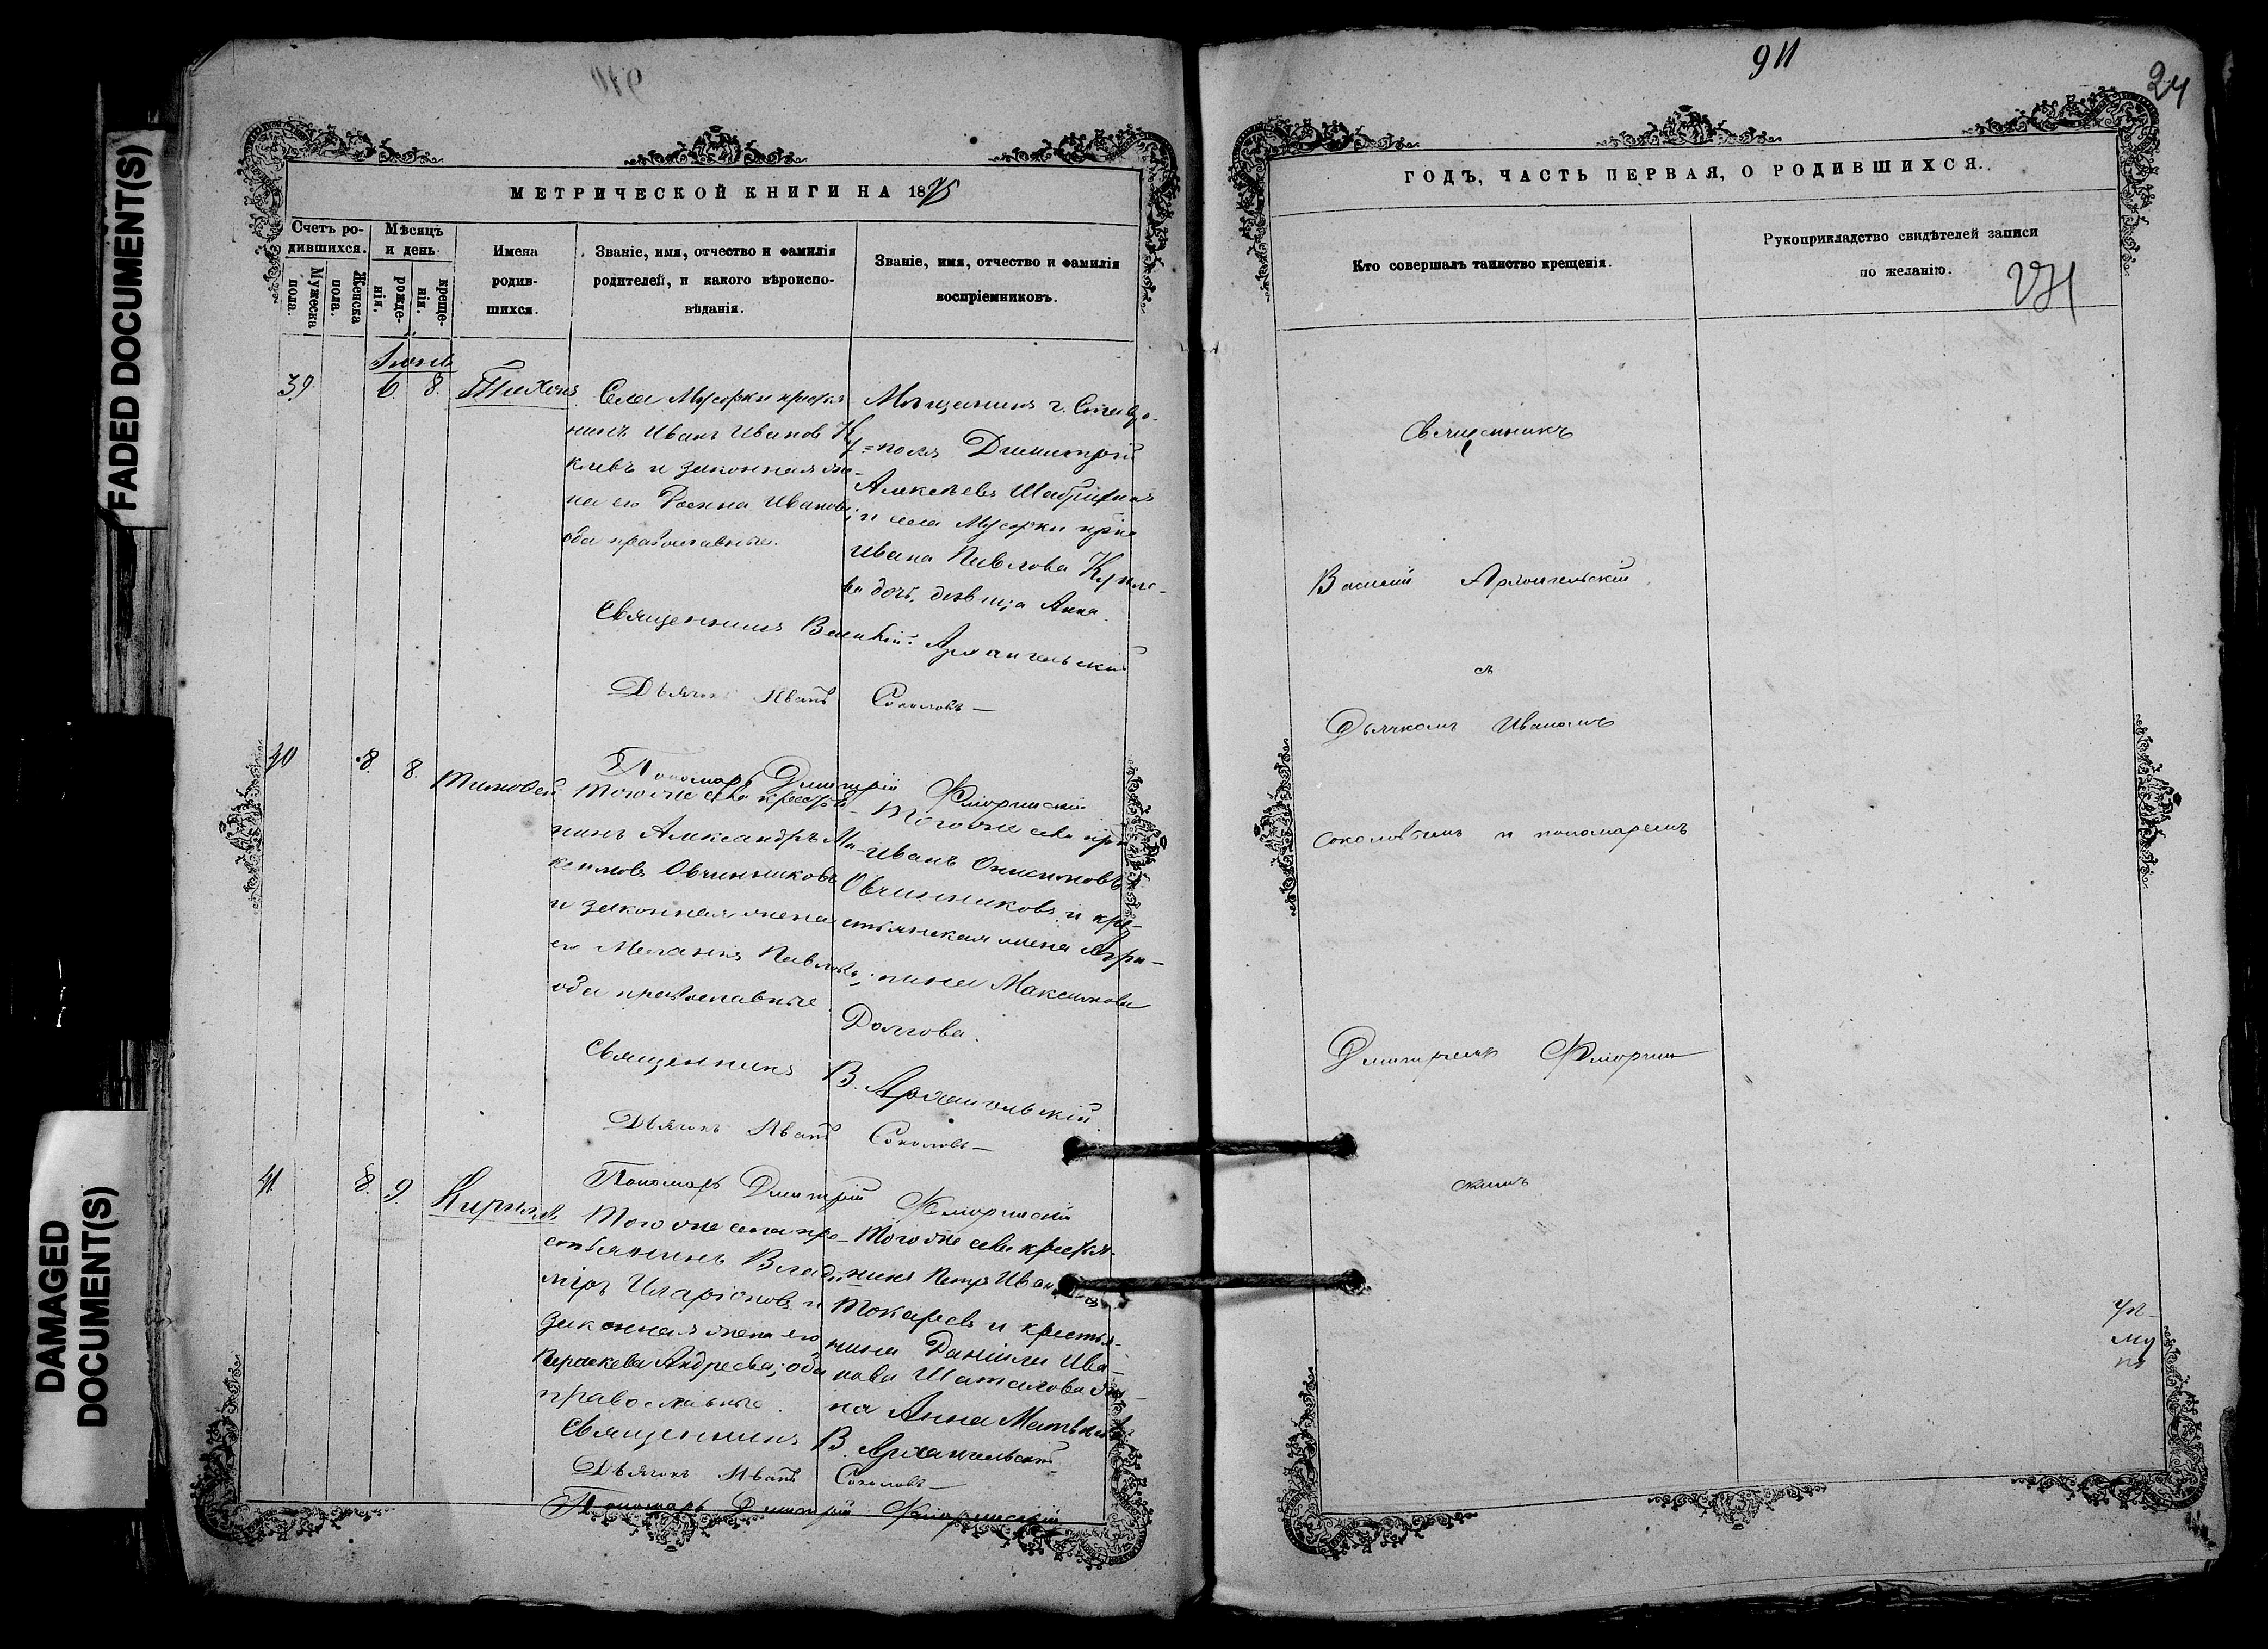 FADED DOCUMENT(S)
DAMAGED
DOCUMENT(S)
МЕТРИЧЕСКОЙ КНИГИ НА 1875
Счетъ ро-
дившихся.
Мужеска
пола.
Женска
пола.
Мѣсяцъ
и день
рожде-
нія.
креще-
нія.
Имена
родив-
шихся.
Званіе, имя, отчество и фамилія
родителей, и какого вѣроиспо-
вѣданія.
Званіе, имя, отчество и фамилія
воспріемниковъ.
Іюнь
39 6 8. Тихонъ
Села Мусорки кресть
нинъ Иванъ Ивановъ Ку
клевъ и законная же-
на его Иванова;
оба православные.
Мѣщанинъ г. Ставро-
=поля Димитрій
Алексѣевъ
и села Мусорки крес
Ивана Павлова
ва дочь, дѣвица Анна.
Священникъ Василій Архангельскій
Дьячокъ Иванъ Соколовъ
Пономарь Дмитрій Флоринскій
40 8. 8. Тимофей
Того же села крестья-
нинъ Александръ Ма-
ксимовъ Овчинниковъ
и законная жена
его Меланія Павлова;
оба православные
Того же села кре
Иванъ Онисимовъ
Овчинниковъ и кре-
стьянская жена Агри-
пина Максимова
Долгова.
Священникъ В. Архангельскій.
Дьячокъ Иванъ Соколовъ
Пономарь Дмитрій Флоринскій
41. 8. 9. Кириллъ
Того же села кре-
стьянинъ Влади-
міръ Иларіоновъ и
законная жена его
Параскева Андреева; оба
православные.
Того же села крестья-
нинъ Петръ Иван
Токаревъ и крестья-
нина Даніила Ива-
нова Шаталова же-
на Анна Матвѣева
Священникъ В. Архангельскій
Дьячокъ Иванъ Соколовъ
Пономарь Дмитрій Флоринскій
911
24
ГОДЪ, ЧАСТЬ ПЕРВАЯ, О РОДИВШИХСЯ.
Кто совершалъ таинство крещенія.
Рукоприкладство свидѣтелей записи
по желанію.
Священникъ
Василій Архангельскій
съ
Дьячкомъ Иваномъ
Соколовымъ и пономаремъ
Дмитріемъ Флорин
скимъ